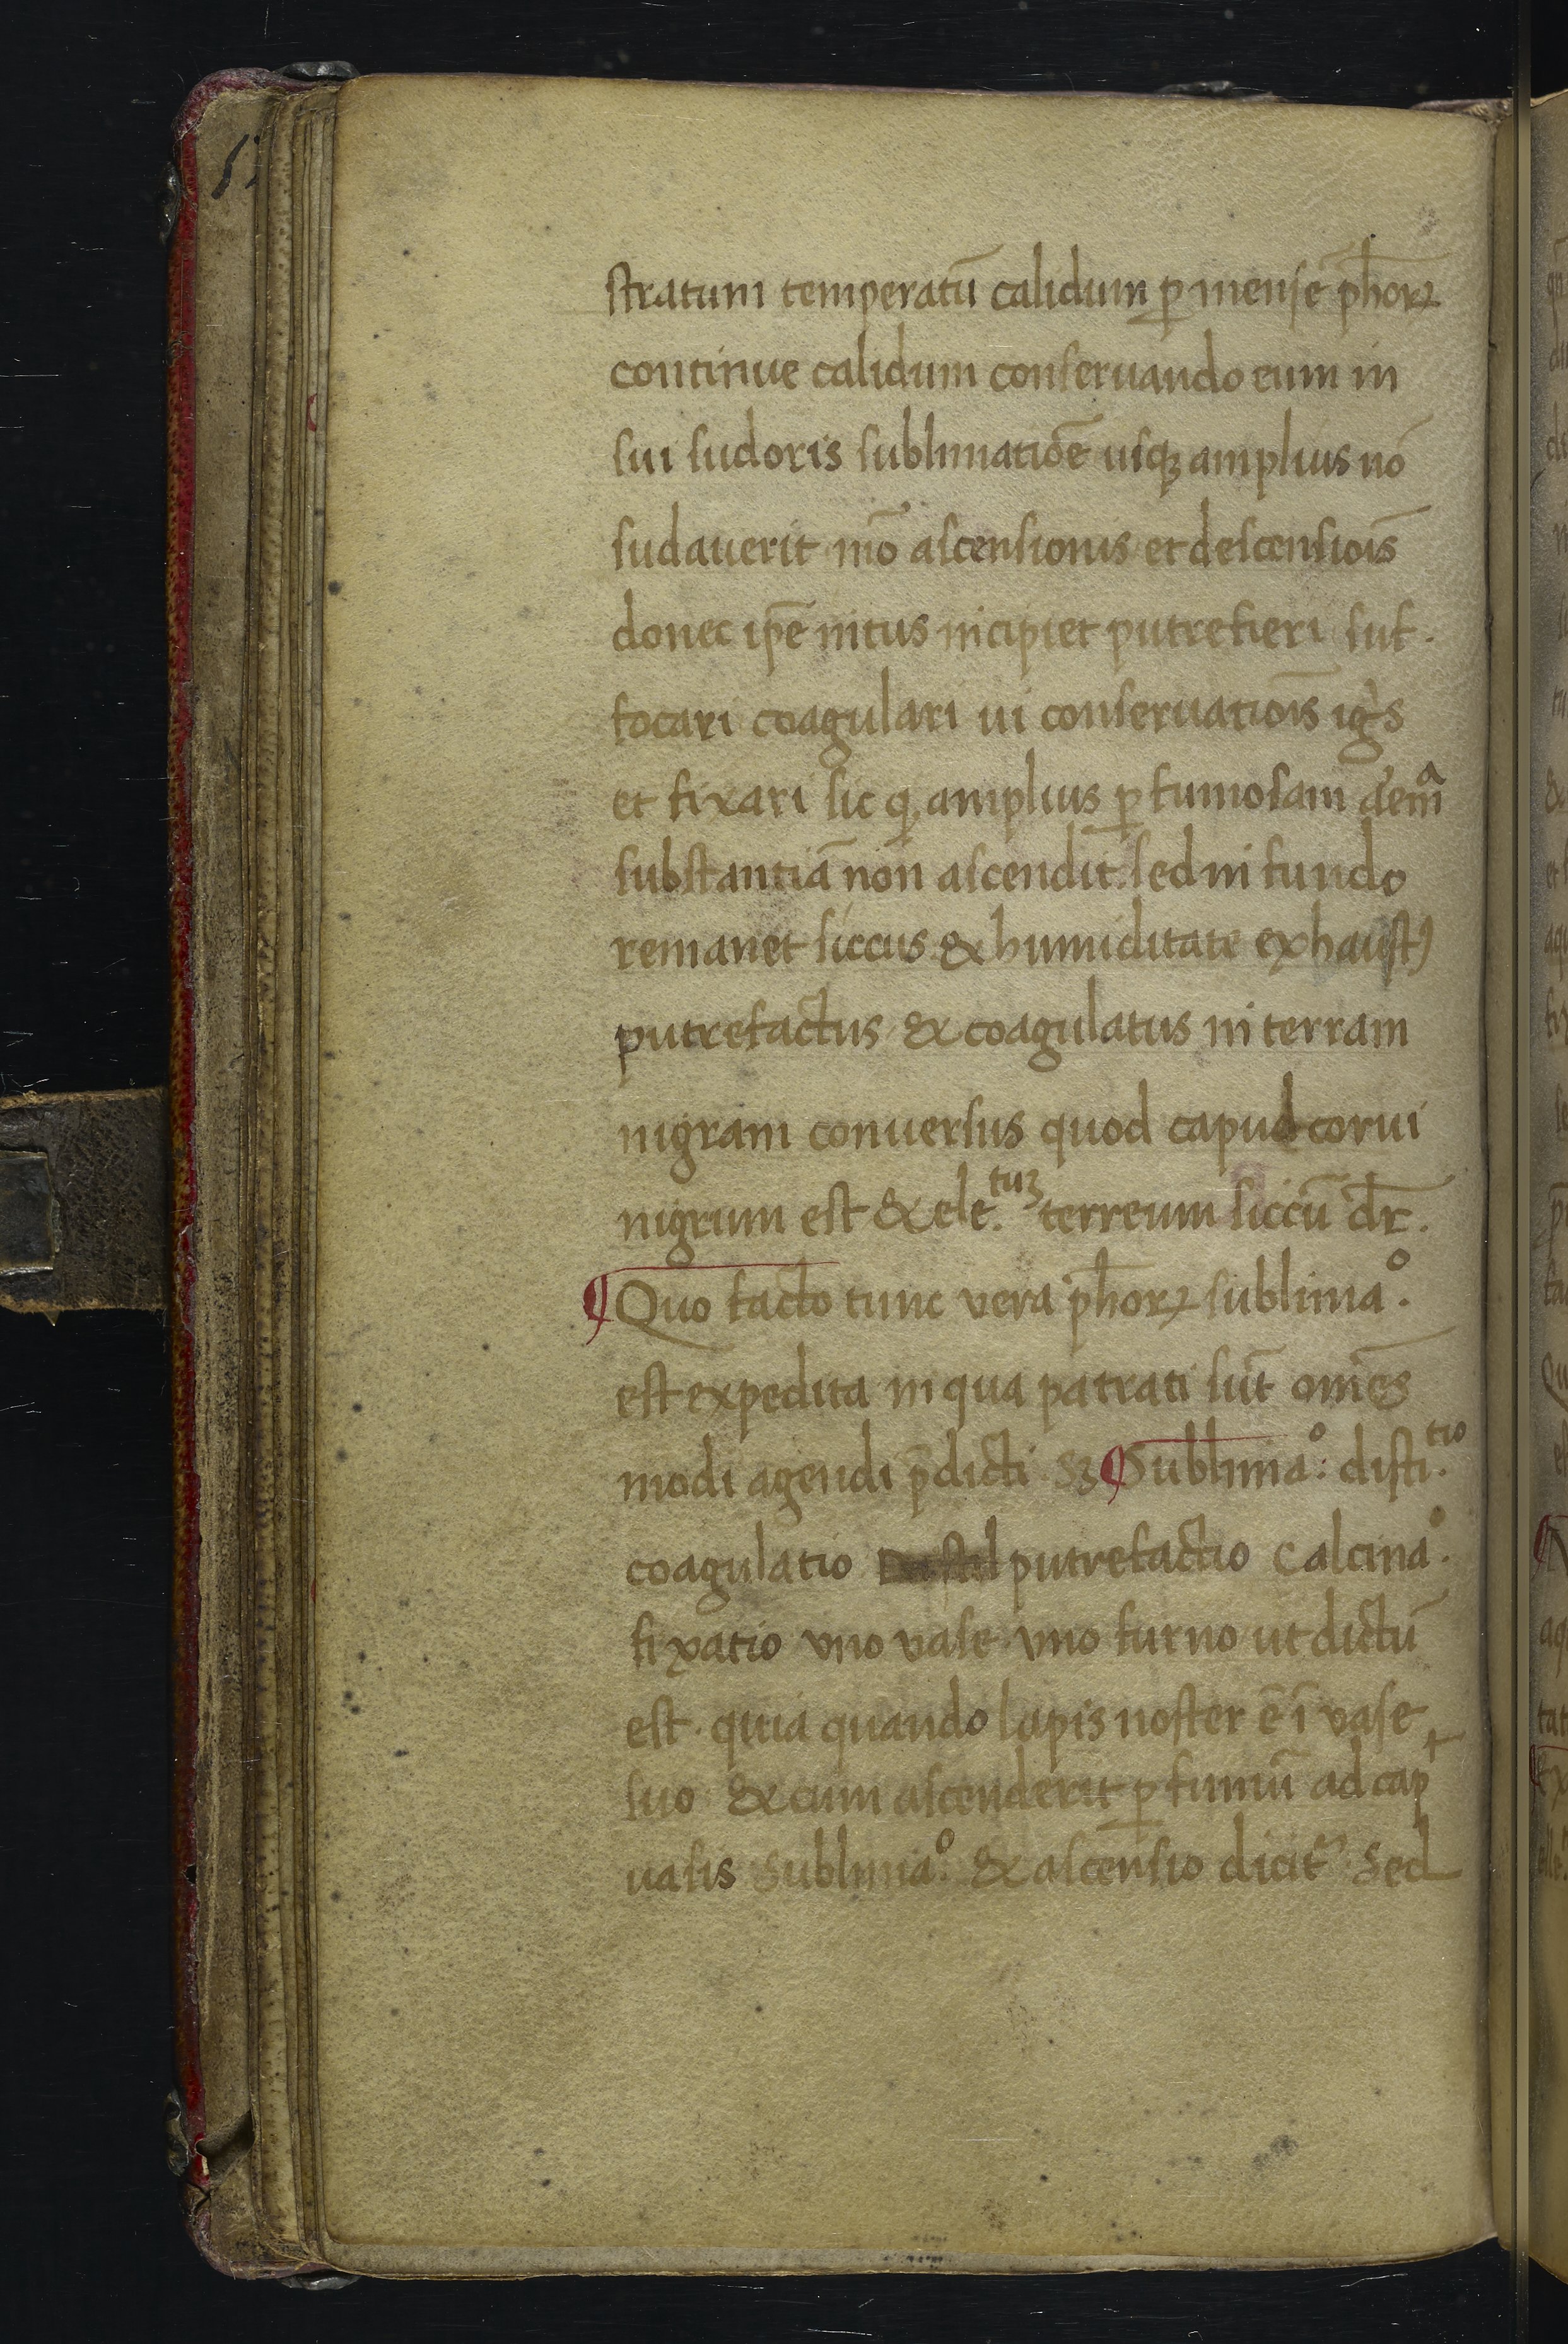 stratum temperatū calidum ꝑ mensē ph̄oꝝ
continue calidum conseruando eum in
sui sudoris sublimatiōe usqꝫ amplius nō
sudauerit mō ascensionis et descensiōis
donec ip̄e intus incipiet putrefieri suf.
focari coagulari ui conseruatiōis iḡs
et fixari sic ꝙ amplius ꝑ fumosam
substantiā non ascendit. sed in fundo
remanet siccus & humiditate exhaustꝰ
putrefactus & coagulatus in terram
nigram conuersus quod capud corui
nigrum est & ele.tuꝫ terreum siccū dr̄.
¶ Quo facto tunc vera ph̄oꝝ sublimaº.
est expedita in qua patrati sūt om̄es
modi agendi p̄dicti sꝫ ¶ Sublimaº: disti.tio
coagulatio putrefactio Calcinaº.
fixatio vno vase vno furno ut dictū
est. quia quando lapis noster ē ī vase
suo & cum ascenderit ꝑ fumū ad capᵗ
uasis Sublimaº. & ascensio dicit᷑ Sed